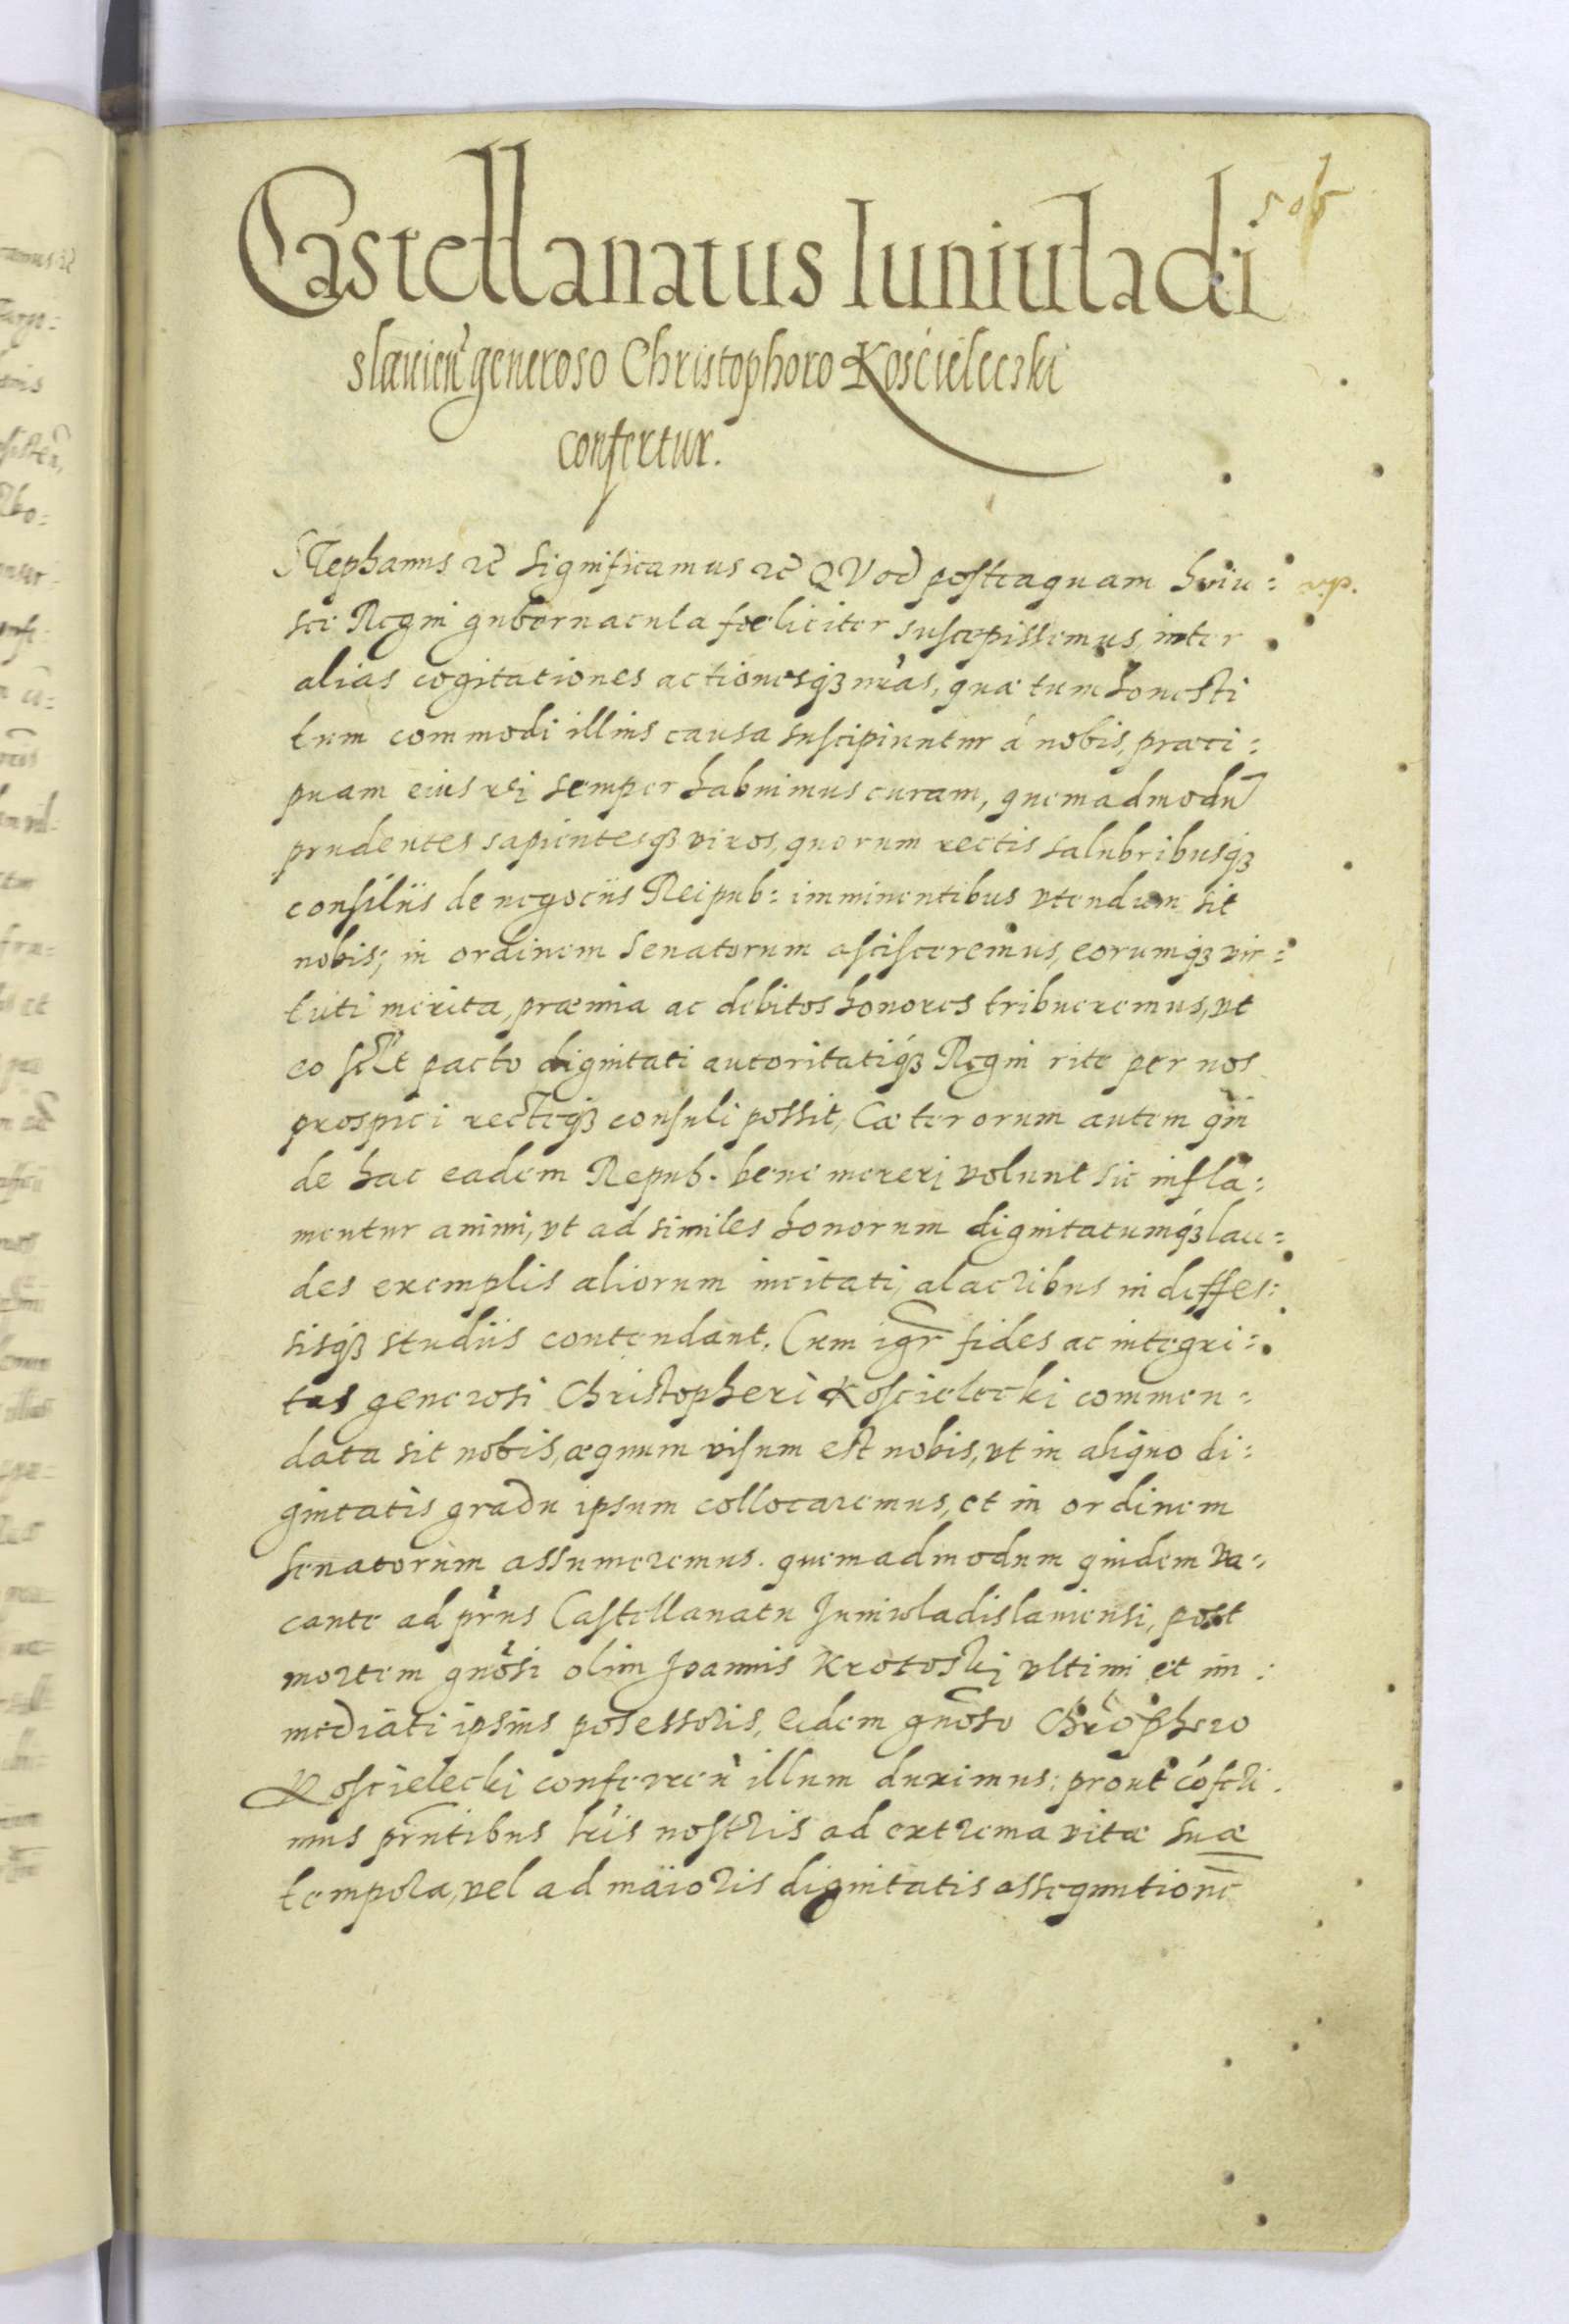 Castellanatus Iuniuladi
slavien̄ generoso Christophoro Kościelecski
confertur.
Stephanus &c̄ significamus &c̄ QVod posteaquam huiu:
sce Regni gubernacula fœliciter suscepissemus, inter
alias cogitationes actionesq̃ nr̃as, quæ tum honesti
tum commodi illius causa suscipiuntur á nobis, præci:
puam eius rei semper habuimus curam, quemadmodū
prudentes sapientesq̃ viros, quorum rectis salubribusq̃
consiliis de negociis Reipub: imminentibus vtendum sit
nobis; in ordinem Senatorum ascisceremus, eorumq̃ vir:
tuti merita, præmia ac debitos honores tribueremus, vt
eo scīlt pacto dignitati autoritatiq̃ Regni rite per nos
prospici recteq̃ consuli possit, Cæterorum autem qui
de hac eadem Repub. bene mereri volunt sic infla:
mentur animi, vt ad similes honorum dignitatumq̃ lau:
des exemplis aliorum incitati, alacribus indeffes:
sisq̃ studiis contendant. Cum igr̄ fides ac integri:
tas generosi Christopheri Koscielecki commen:
data sit nobis, æquum visum est nobis, vt in aliquo di:
gnitatis gradu ipsum collocaremus, et in ordinem
senatorum assumeremus. quemadmodum quidem va:
cante ad pr̃ns Castellanatu Juniwladislauiensi, post
mortem gnõsi olim Joannis Krotoski vltimi et im:
mediati ipsius posessoris, eidem gnõso Chr̃ophero
Koscielecki conferen̄ illum duximus: prout cóferi:
mus pr̃ntibus lr̃is nostris ad extrema vitæ suæ
tempora, vel ad maioris dignitatis assequutionē